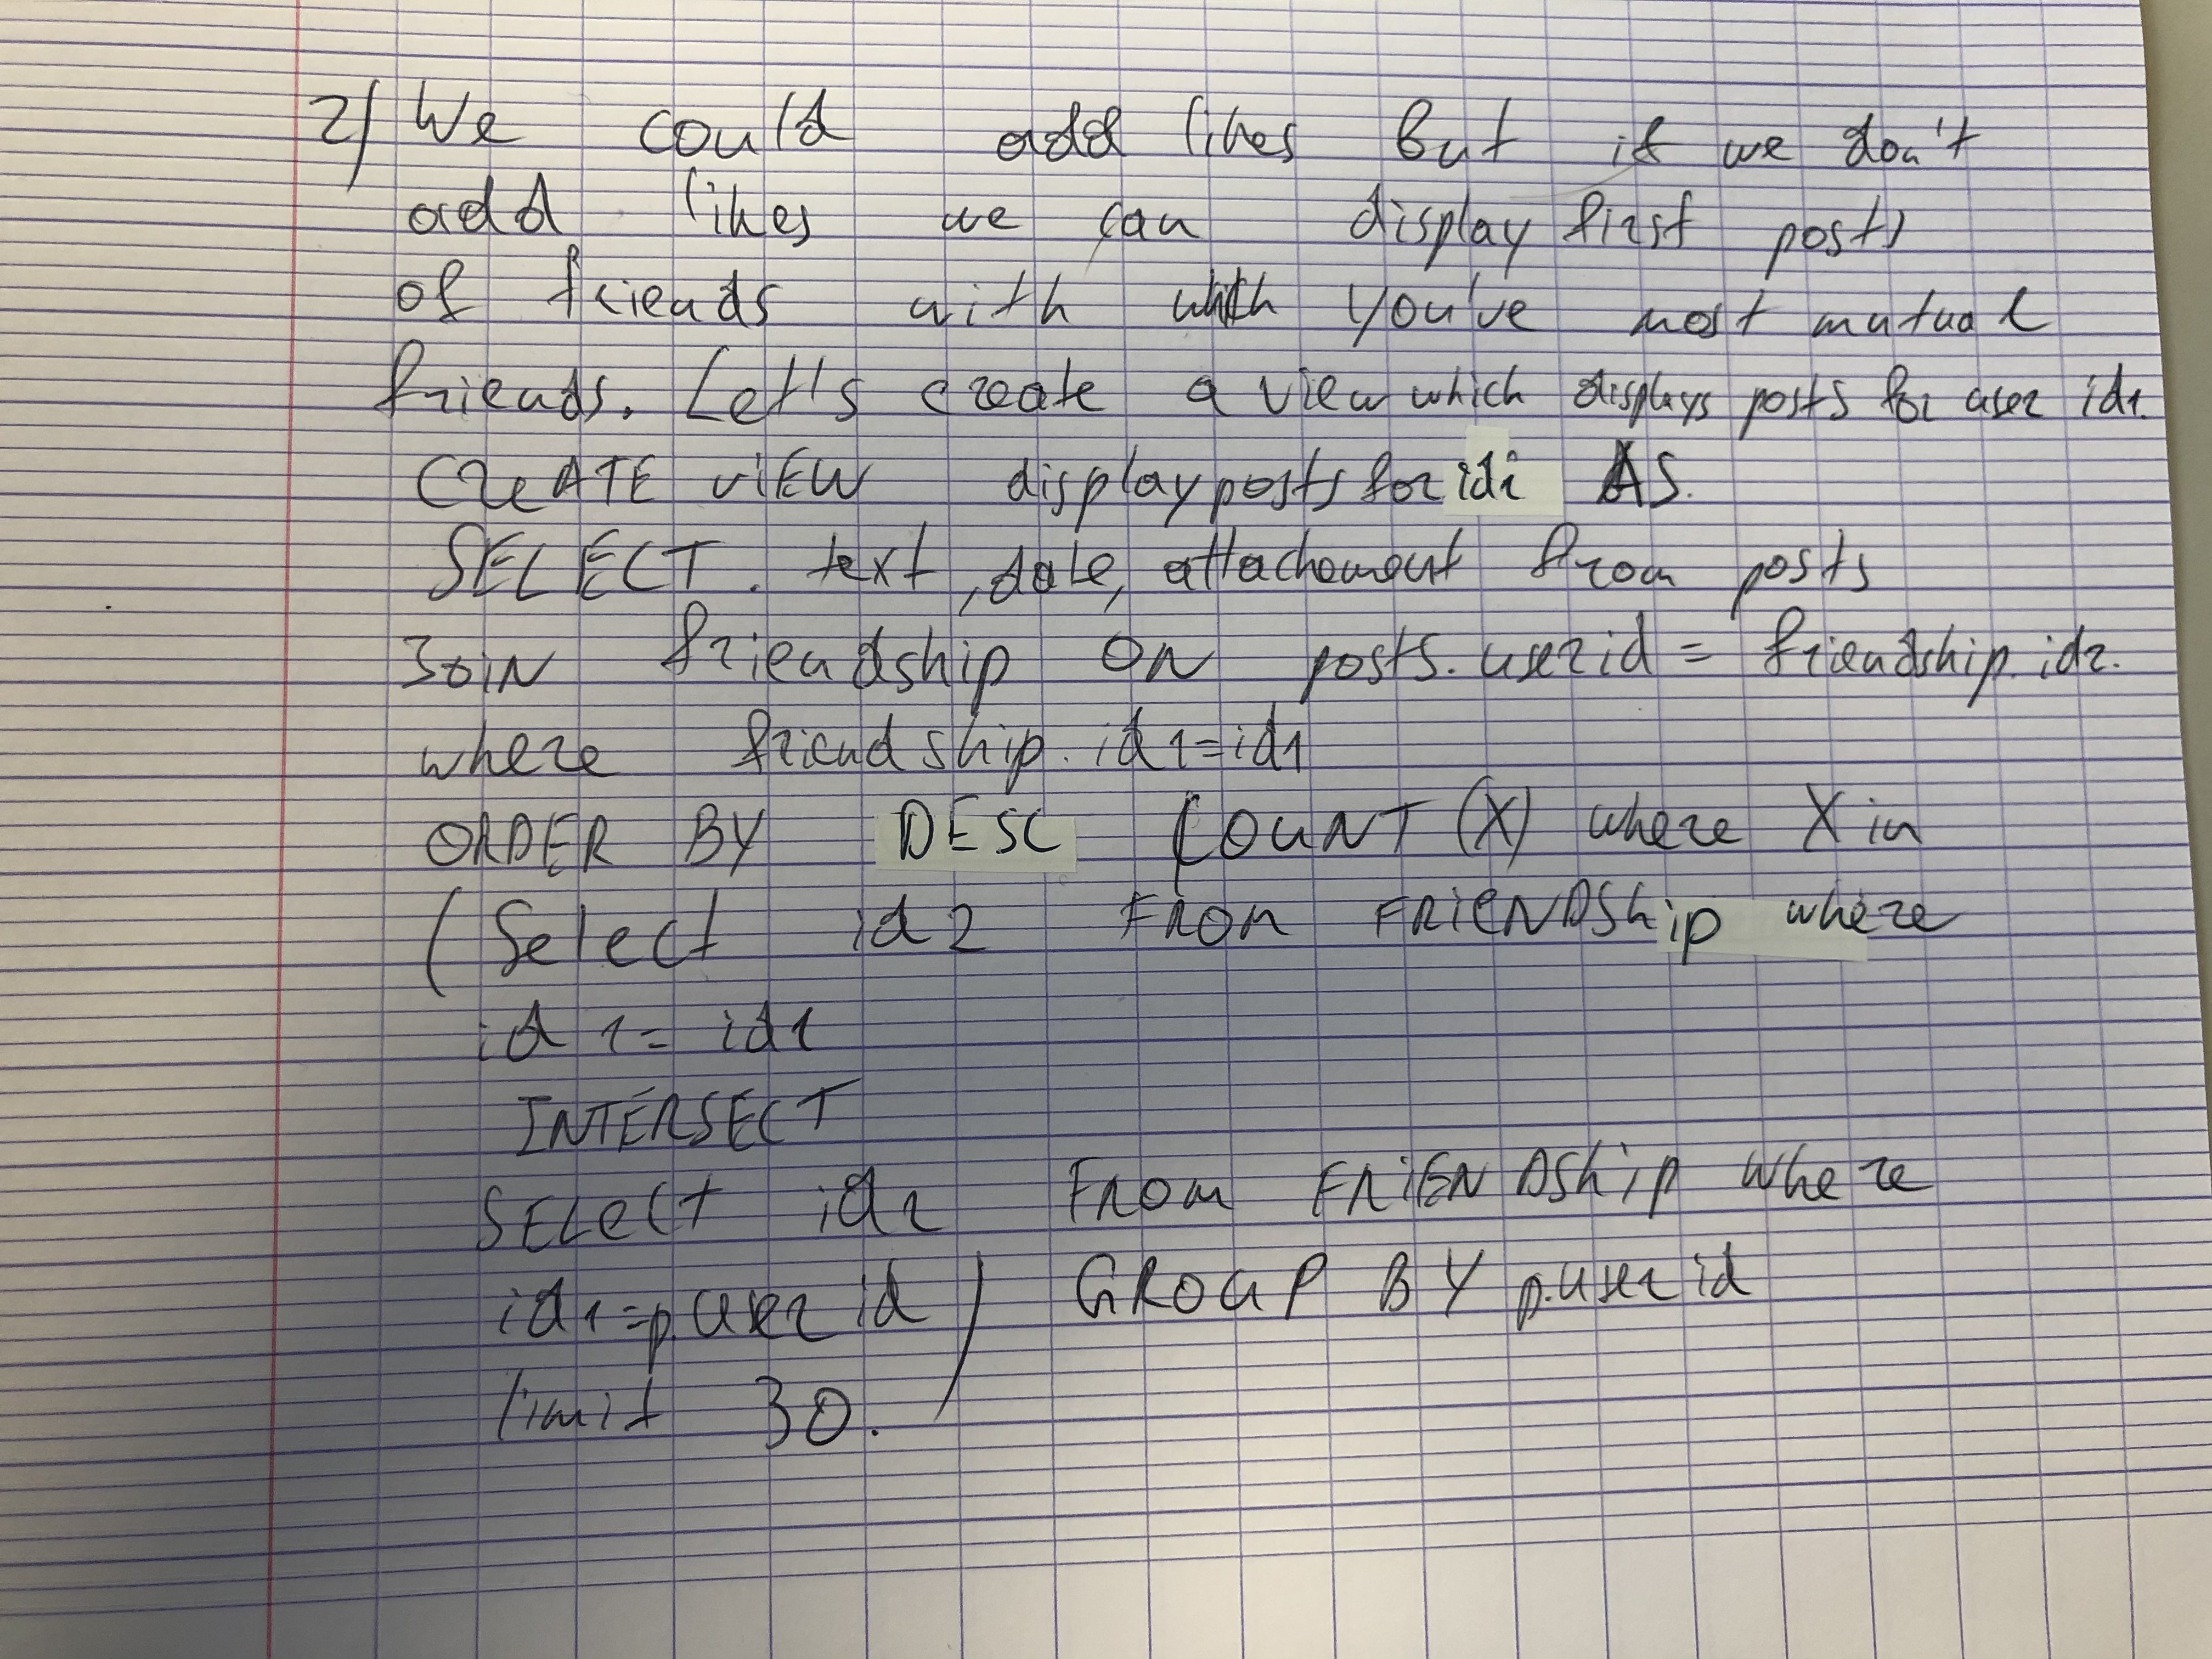 2) We could add likes but if we don't
add likes we can display first posts
of friends with which you've most mutual
friends. Let's create a view which displays posts for user id1.
CREATE VIEW displaypostsforid1 AS.
SELECT. text, date, attachement from posts
JOIN friendship ON posts.userid = friendship.id2.
where friendship.id1=id1
ORDER BY DESC COUNT (X) where X in
(Select id2 FROM FRIENDShip where
id1= id1
INTERSECT
SELECT id2 FROM FRIENDShip where
id1=p.userid) GROUP BY p.userid
limit 30.